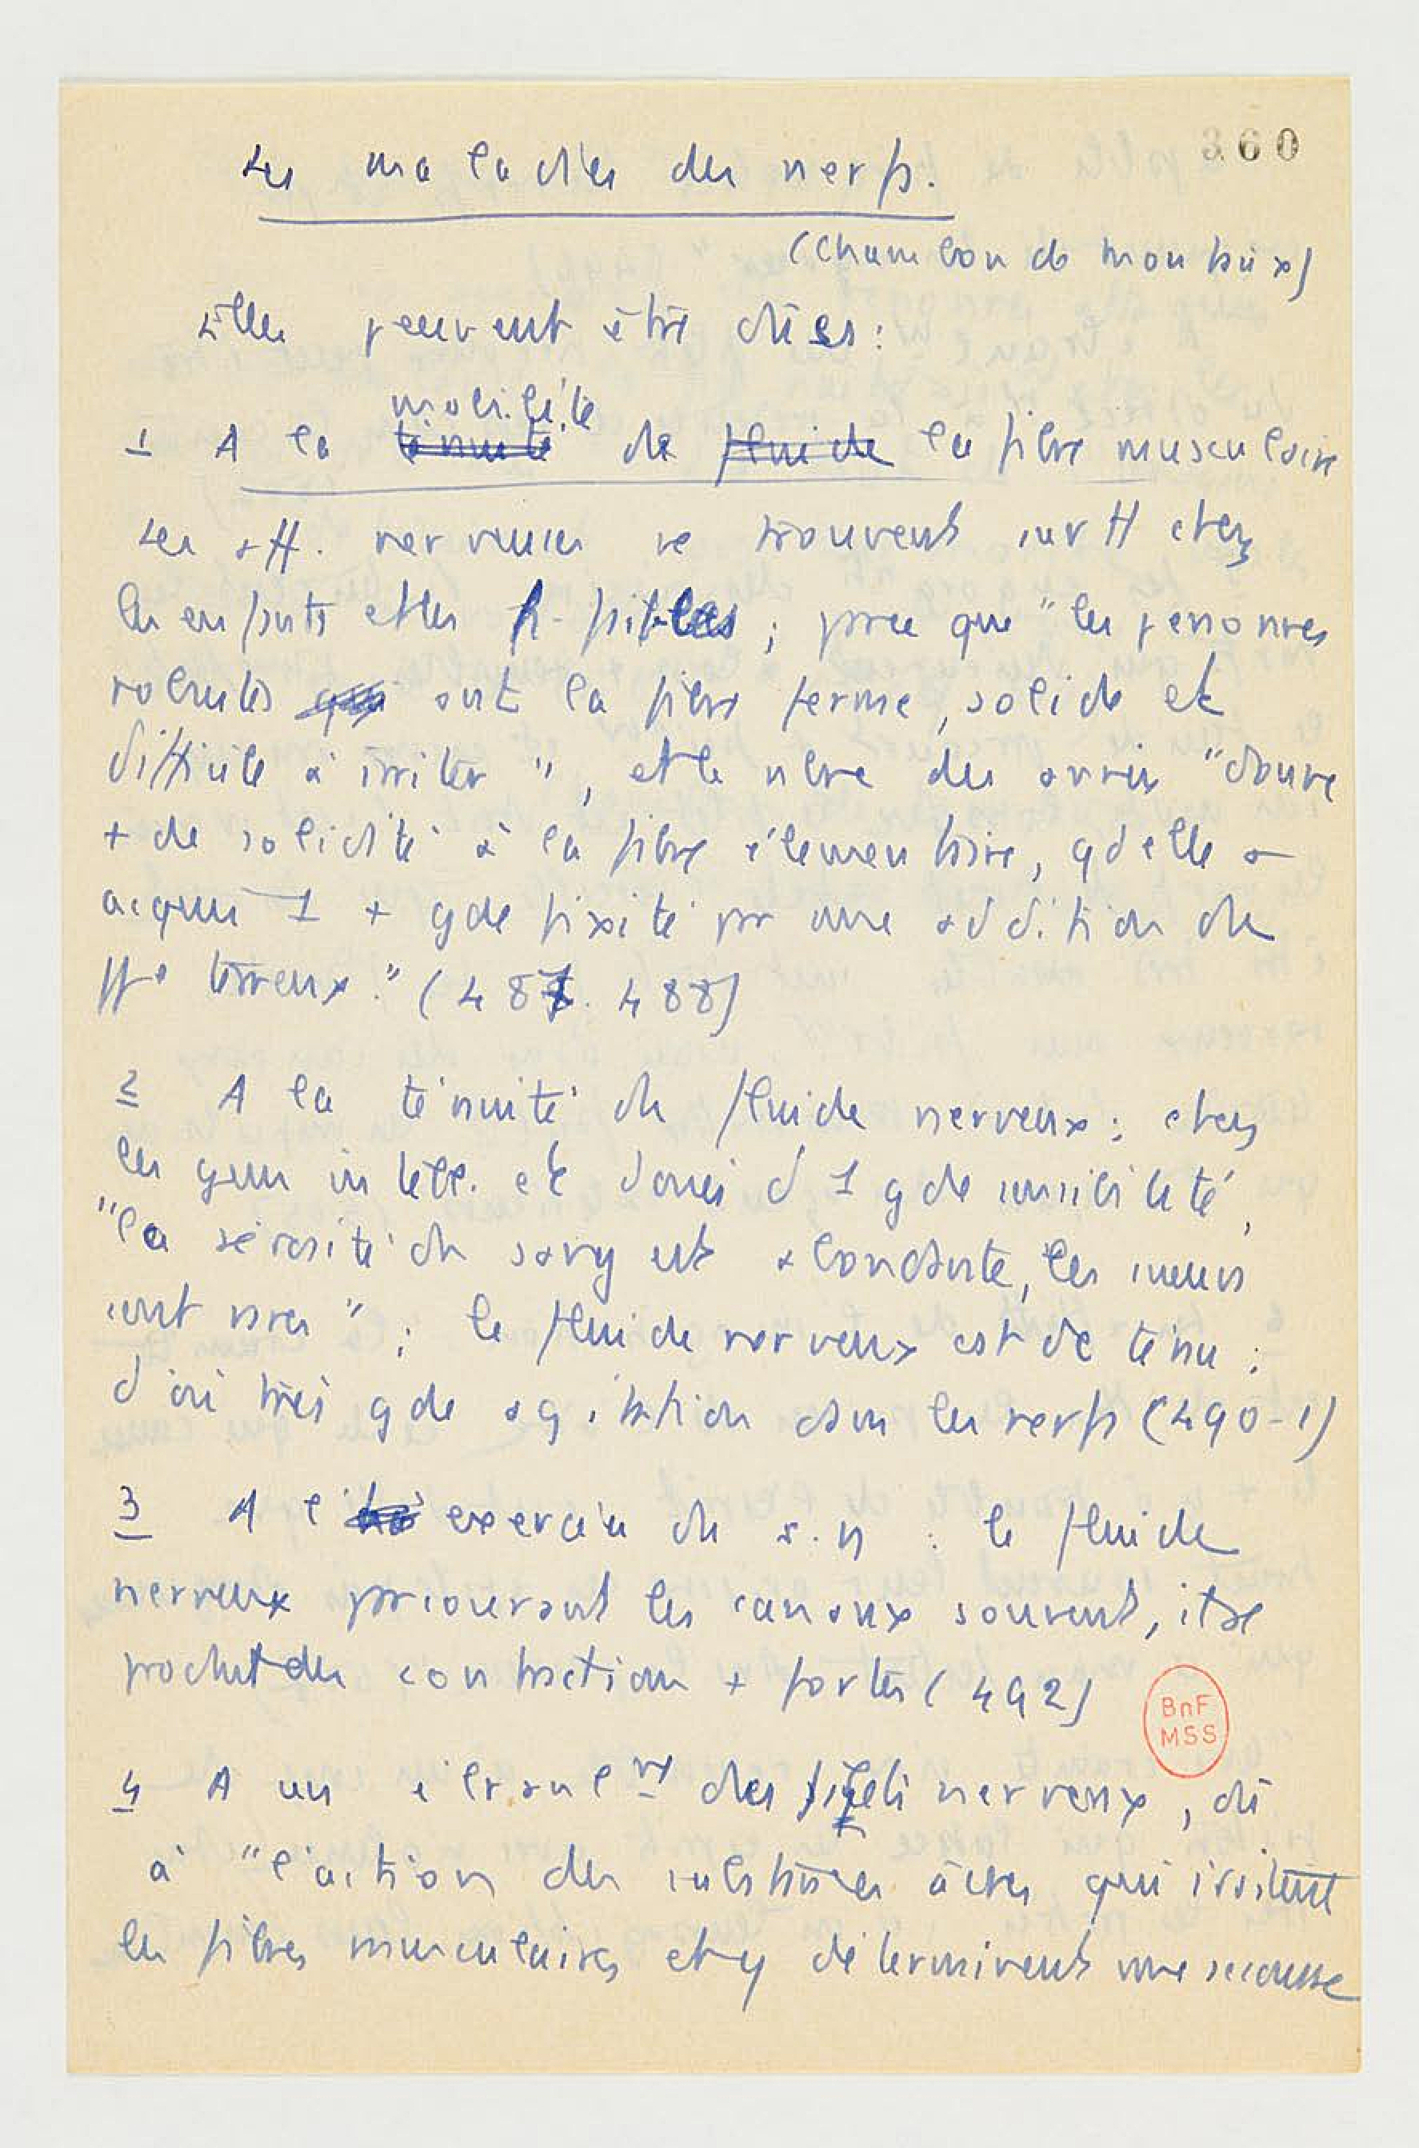 360
Les maladies des nerfs.
(Chambon de Montaux)
Elles peuvent être dues :
mobilité
1 A la ténuité de fluide la fibre musculaire
Les aff. nerveuses se trouvent surtt chez
les enfants et les f. faibles ; parce que "les personnes
robustes ont la fibre ferme, solide et
difficile à irriter", et le nbre des années "donne
+ de solidité à la fibre élémentaire, qd elle a
acquis 1 + gde fixité par une addition de
ppes terreux." (487. 488)
2 A la ténuité du fluide nerveux : chez
les gens intell. et doués d 1 gde sensibilité,
"la sérosité du sang est abondante, les sueurs
sont rares" ; le fluide nerveux est dc ténu :
d'où très gde agitation dans les nerfs (490-1)
3 A l'exercice du s. n : le fluide
nerveux parcourant les canaux souvent, il se
produit des contractions + fortes (492)
BnF
MSS
4 A un ébranlnt des filets nerveux, dû
à "l'action des substances âcres qui irritent
les fibres musculaires et y déterminent une secousse